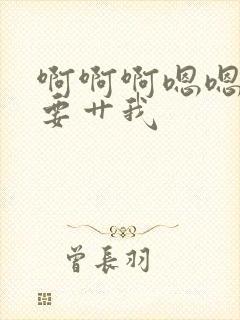 啊啊啊嗯嗯
要艹我
曾長羽